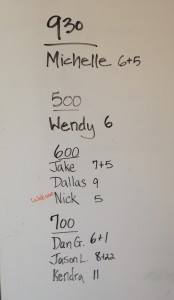 930
Michelle 6+5
500
Wendy 6
600
Jake 7+5
Dallas 9
Nick 5
700
Dan G. 6+1
Jason L. 8+22
Kendra 11